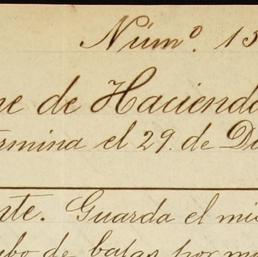 Núm.º 13
ne de Hacienda
termina el 29. de Di
nte. Guarda el mis
ubo de bajas por m